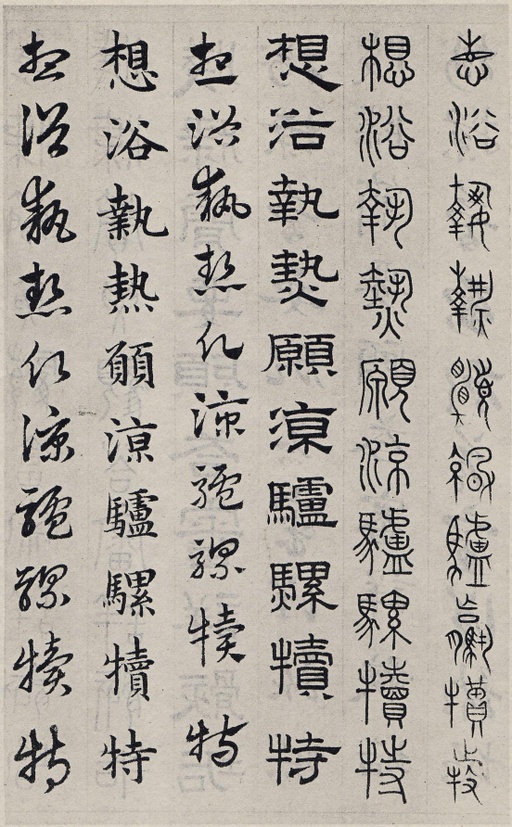 想浴執熱願涼驢騾犢特
想浴執熱願涼驢騾犢特
想浴執熱願涼驢騾犢特
想浴執熱願涼驢騾犢特
想浴執熱願涼驢騾犢特
想浴執熱願涼驢騾犢特